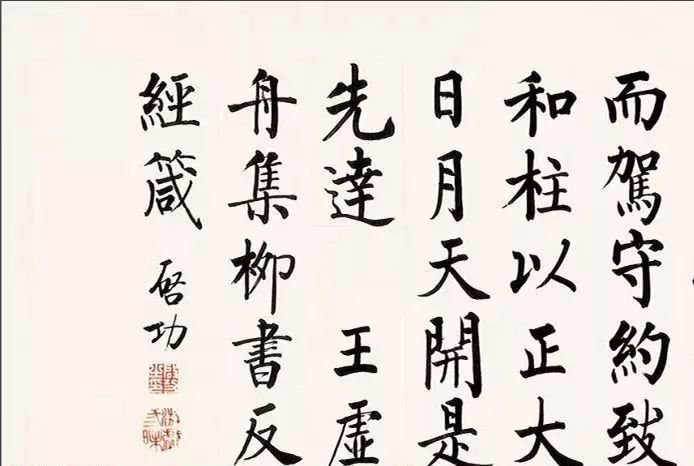 而駕守約致
和柱以正大
日月天開是
先達 王虛
舟集柳書反
經箴 啓功